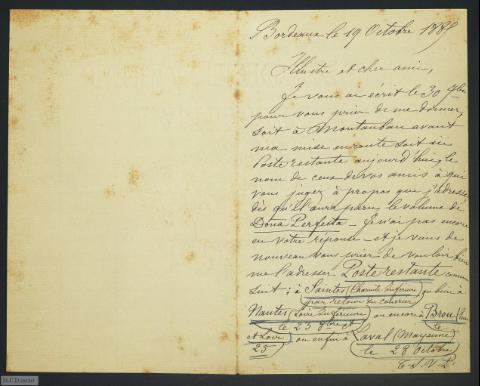 Bordeaux le 19 Octobre 1885
Illustre et cher ami,
Je vous ai écrit le 30 7bre
pour vous prier de me donner,
soit à Montauban avant
ma mise en route soit ici
Poste restante aujourd'hui, le
nom de ceux de vos amis à qui
vous jugez à propos que j'adresse
dès qu'il aura paru, le volume de
Doña Perfecta - Je n'ai pas encore
eu votre réponse - et je viens de
nouveau vous prier de vouloir bien
me l'adresser Poste restante comme
suit; à Saintes (Charente Inférieure
par retour du courrier) ou bien à
Nantes (Loire Inférieure)
le 23 ou encore à Brou (Eure
et Loire) le
25) ou enfin à Laval (Mayenne)
le 28 Octobre
T.S.V.P.